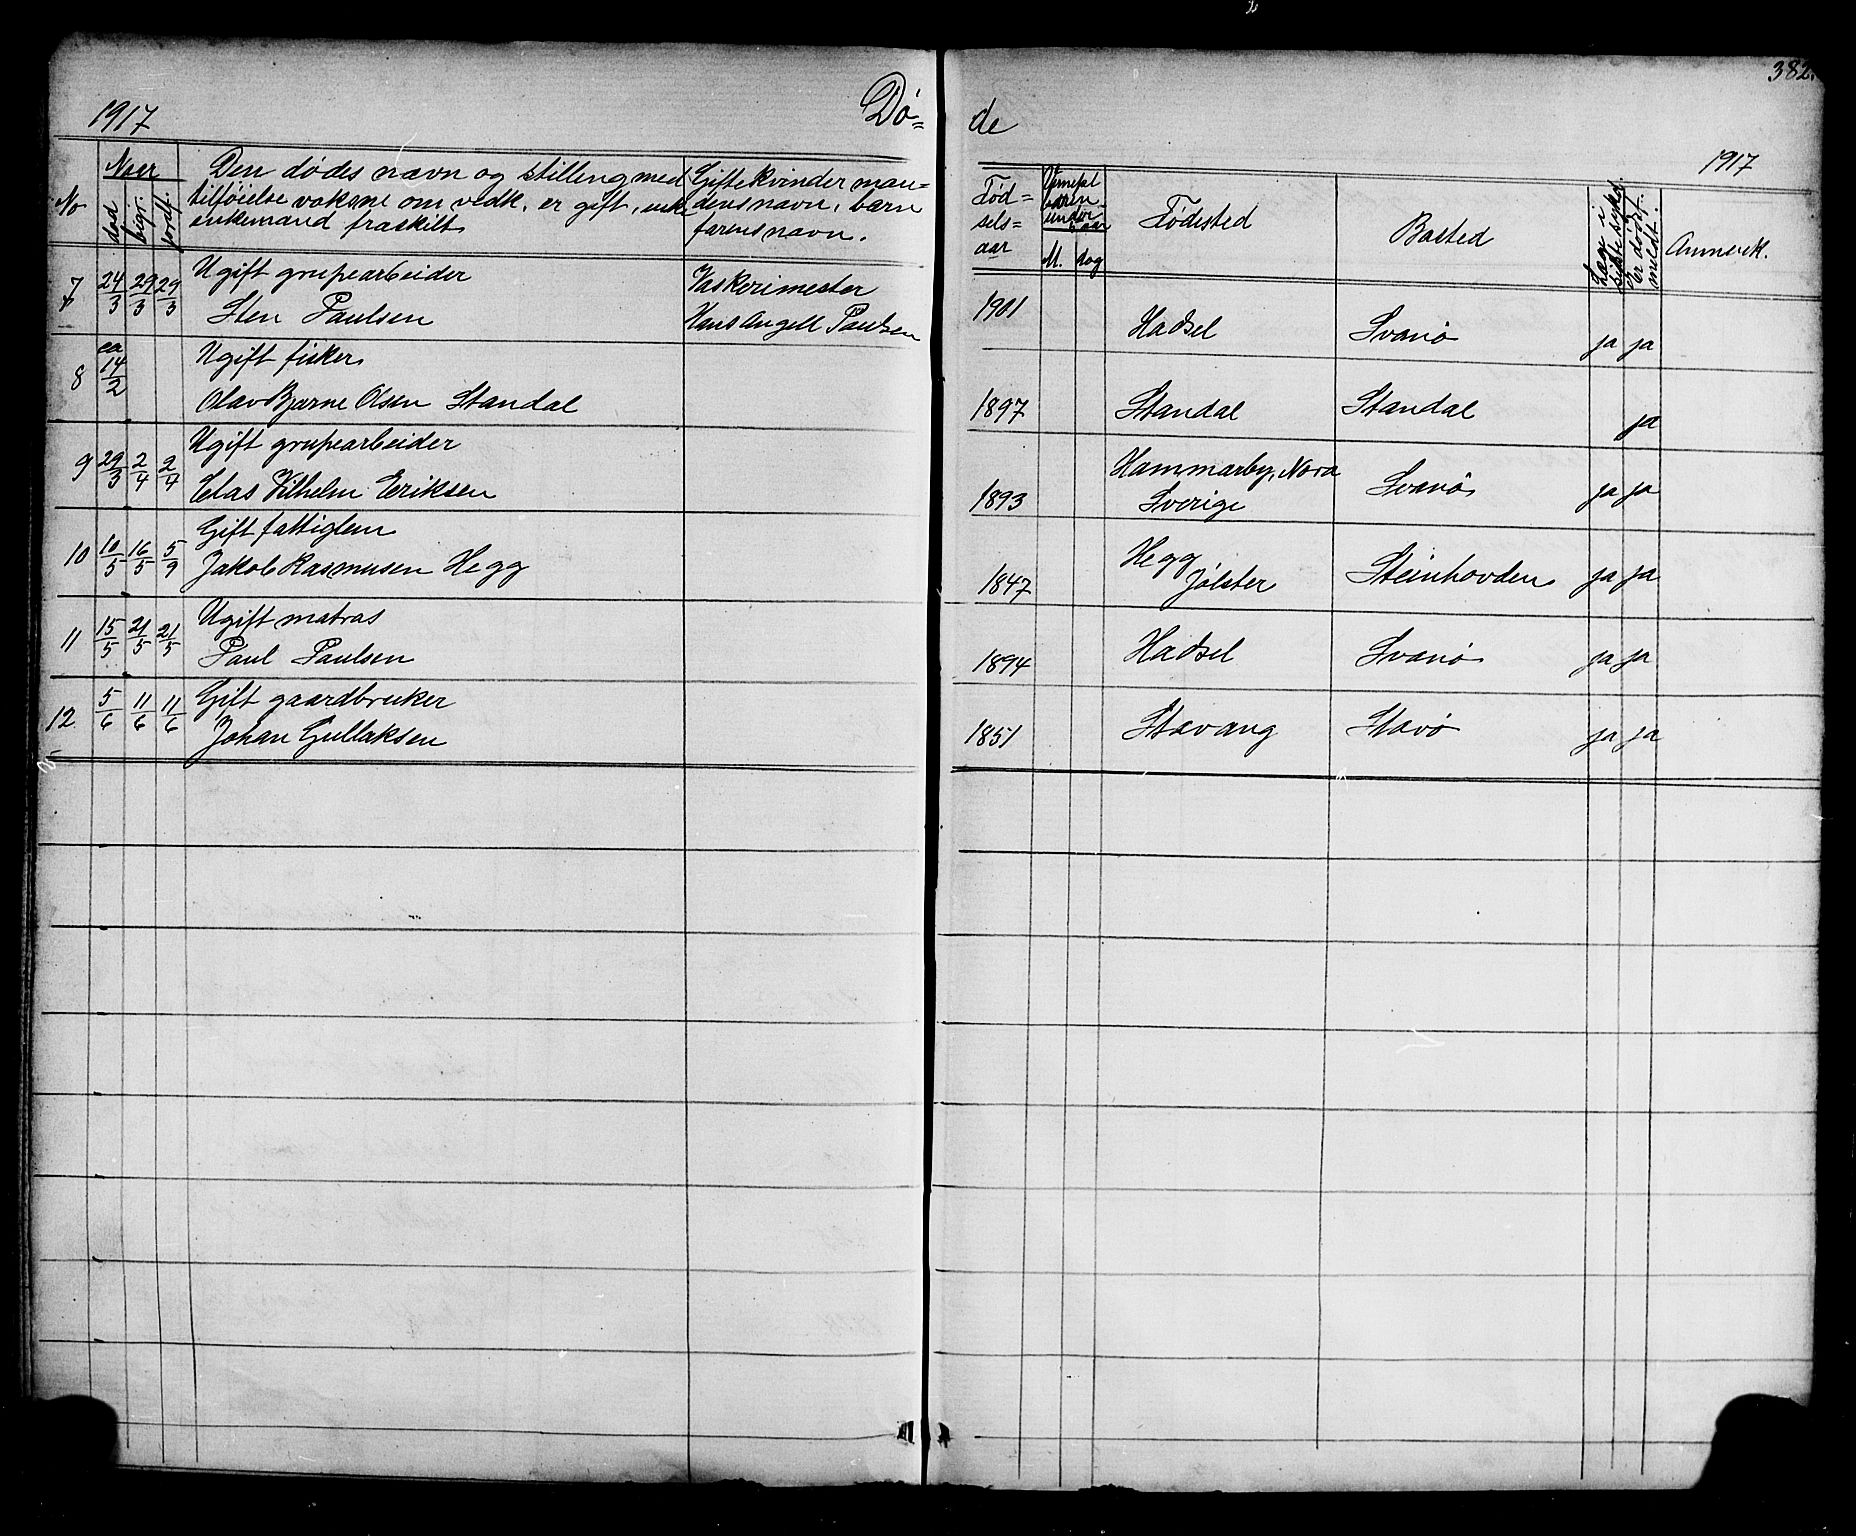 382.
1917 Dø= de 1917
No Naar død begr. jordf. Den dødes navn og stilling med tilføielse voksne om vedk. er gift, enke enkemand fraskilt Gifte kvinder man= dens navn, barn farens navn. Fød= sels= aar under aar M. dag Fødested Bosted Læge i siste sykd. Er dødsf. meldt. Anmerk.
7 24/3 29/3 29/3 Ugift grupearbeider Vaskerimester 1901
Sten Paulsen Hans Angell Paulsen Hadsel Svanø ja ja
8 ca 14/2 Ugift fisker
Olav Bjarne Olsen Standal 1897 Standal Standal ja
9 29/3 2/4 2/4 Ugift grupearbeider Hammarby, Nora
Clas Vilhelm Eriksen 1893 Sverige Svanø ja ja
10 10/5 16/5 5/9 Gift fattiglem Hegg
Jakob Rasmusen Hegg 1847 Jølster Steinhovden ja ja
11 15/5 21/5 21/5 Ugift matros
Paul Paulsen 1894 Hadsel Svanø ja ja
12 5/6 11/6 11/6 Gift gaardbruker
Johan Gullaksen 1851 Stavang Stavø ja ja